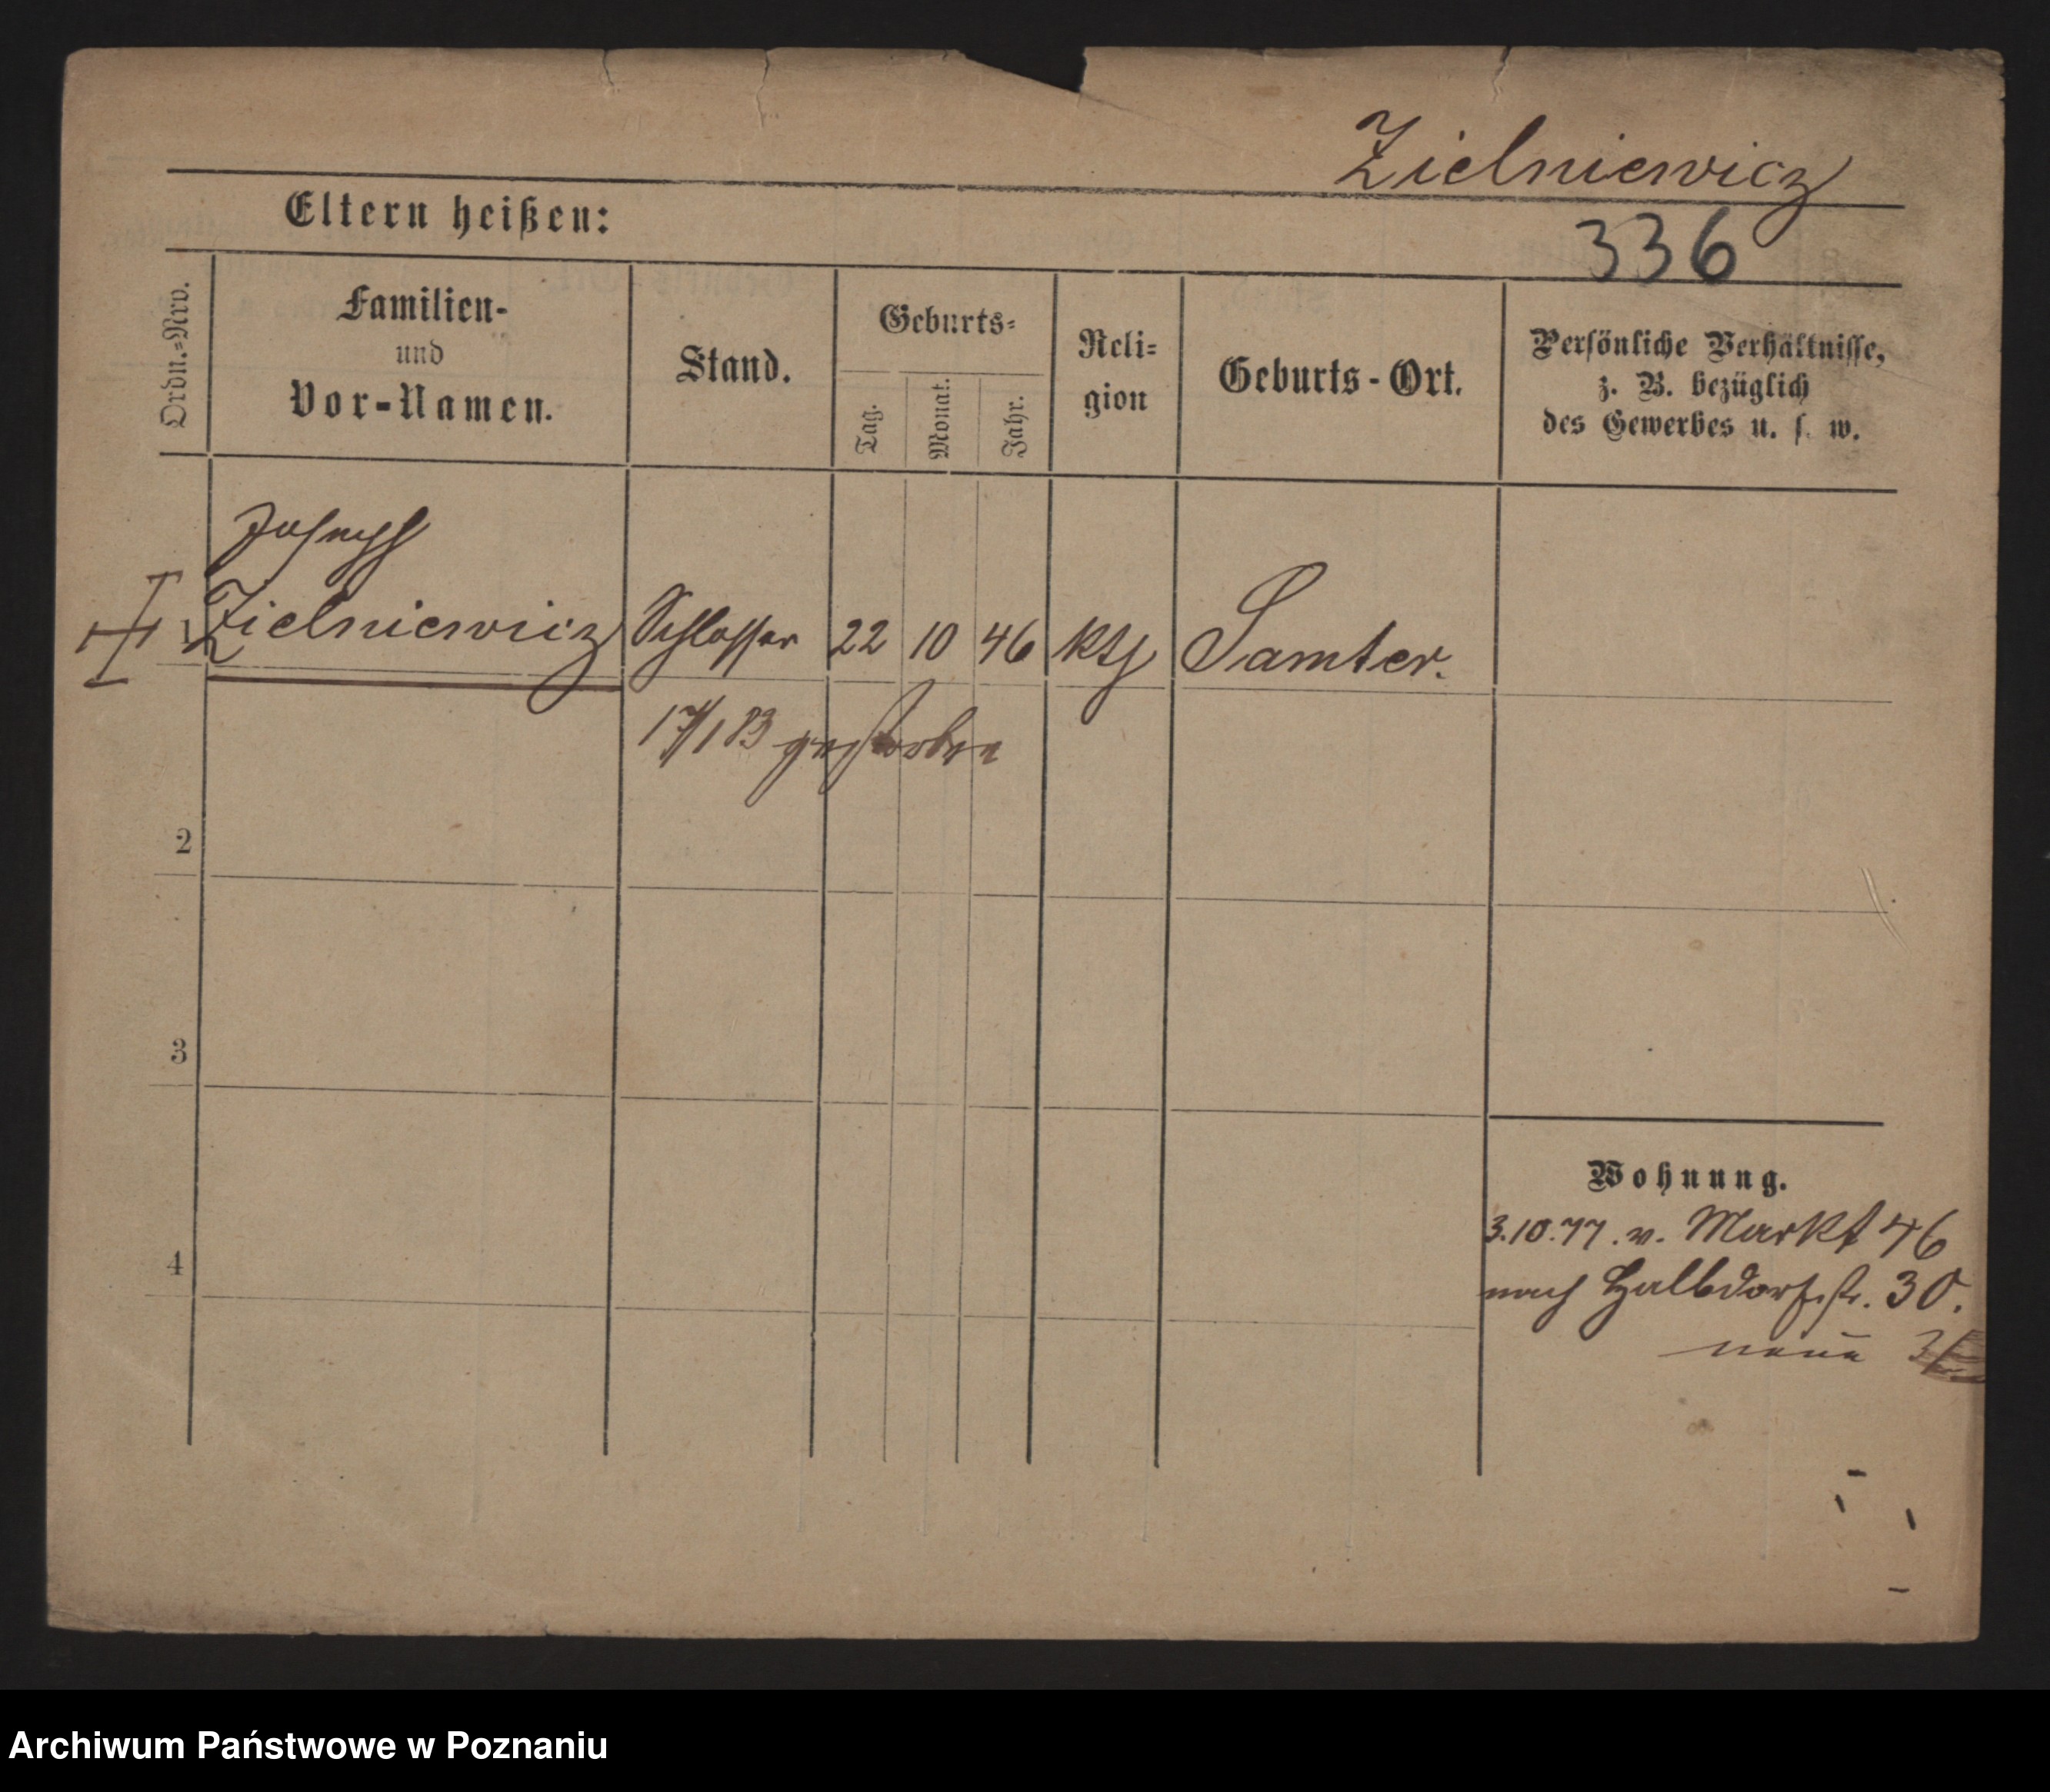 Zielniewicz
Eltern heißen:
336
Ordn.-Nro.
Familien-
und
Vor-Namen.
Stand.
Geburts-
Tag.
Monat.
Jahr.
Reli-
gion
Geburts-Ort.
Persönliche Verhältnisse,
z. B. bezüglich
des Gewerbes u. s. w.
Joseph
1 Zielniewicz Schlosser 22 10 46 kth Samter.
17/1 83 gestorben
2
3
4
Wohnung.
3.10.77. v. Markt 46
nach Halbdorfstr. 30.
Archiwum Państwowe w Poznaniu